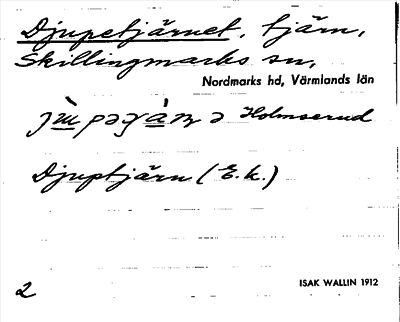 Djupetjärnet, tjärn,
Skillingmarks sn,
Nordmarks hd, Värmlands län
Holmserud
Djuptjärn (E.k.)
2
ISAK WALLIN 1912